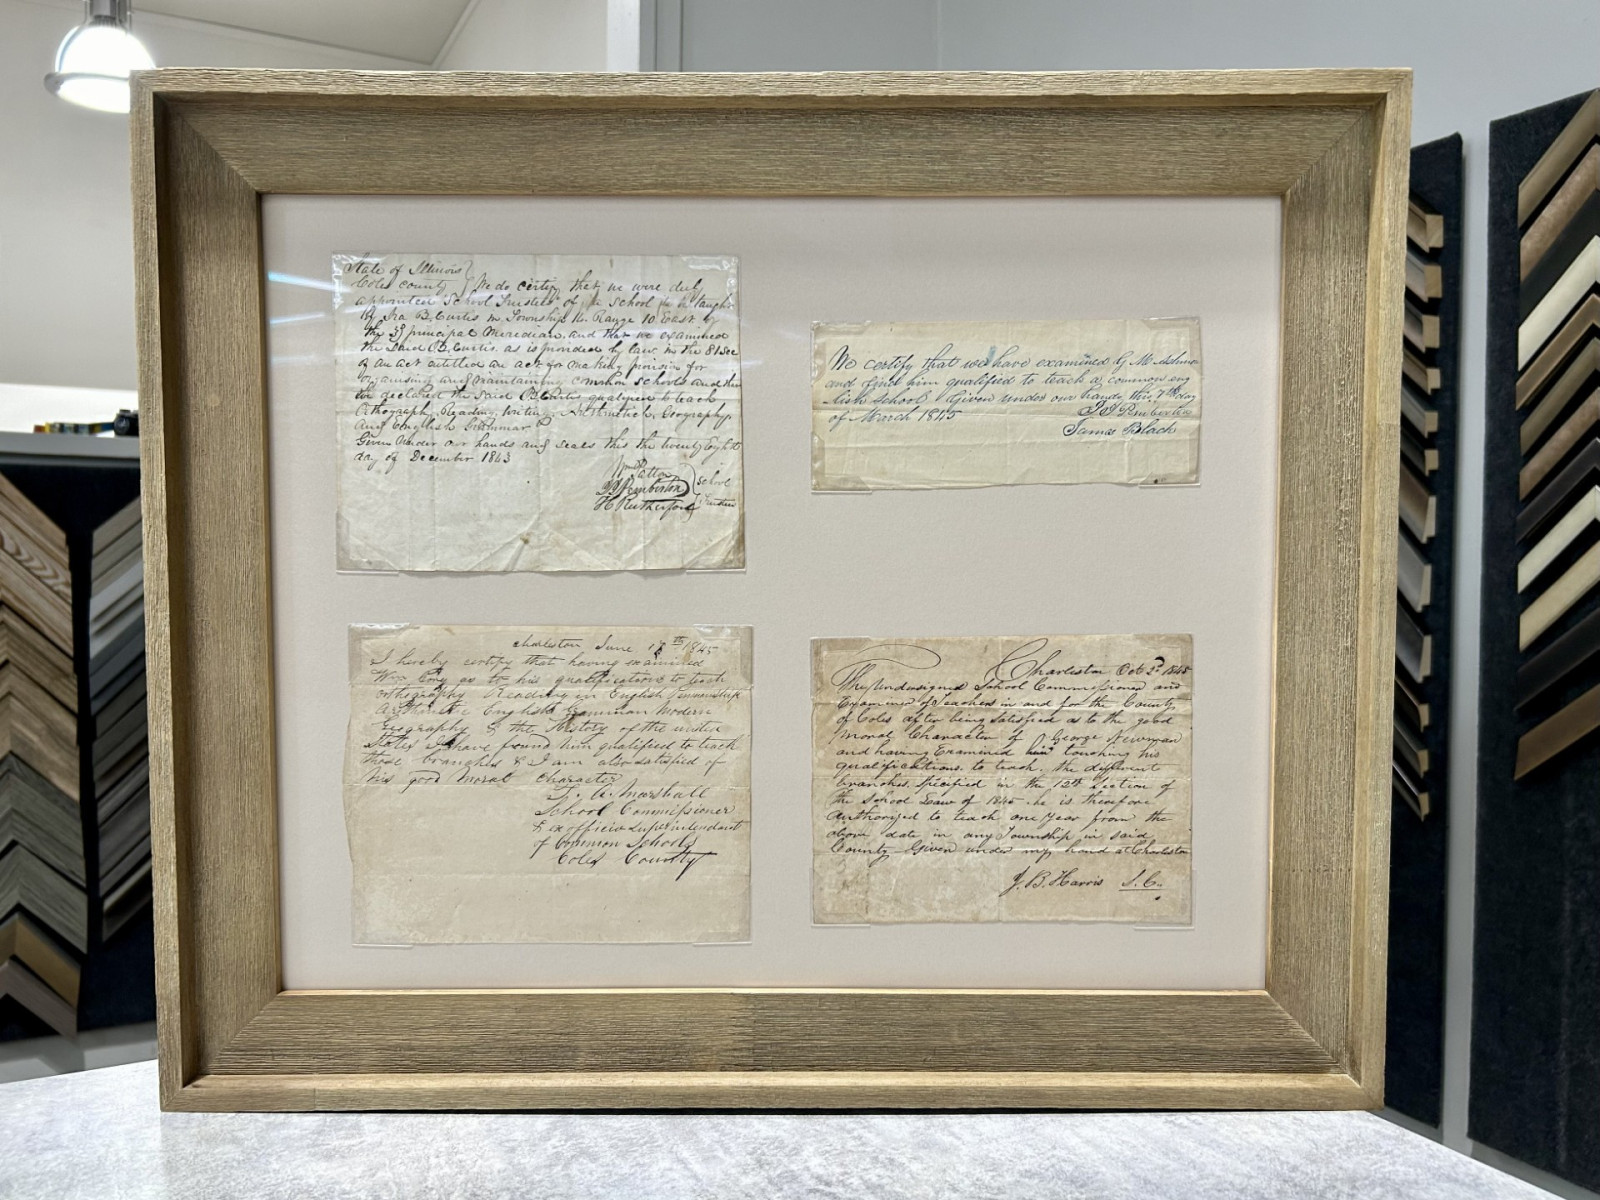 State of Illinois
Coles county } We do certify that we were duly
appointed School Trustees of a School to be taught
By Ira B. Curtis in Township 11 Range 10 East of
the 3d principal Meridian, and that we examined
the Said B. Curtis. as is provided by law. in the 81 Sec
of an act entitled an act for making provision for
organising and maintaining common schools and
we declared the Said B. Curtis qualified to teach
Orthography, Reading, Writing Arithmetick, Geography,
and English Grammar
Given Under our hands and seals this the twenty Eighth
day of December 1843
Wm Patton
Pemberton } School
H Rutherford } Trustees
We certify that we have examined G M
and find him qualified to teach a common eng
lish School Given under our hands this 7th day
of March 1845
Pemberton
James Black
Charleston June 1845
I hereby certify that having examined
Wm as to his qualifications to teach
Orthography Reading in English Penmanship
Arithmetic English Grammar Modern
Geography & the History of the united
States I have found him qualified to teach
those branches & I am also satisfied of
his good moral character
T. A. Marshall
School Commissioner
& ex officio superintendant
of Common Schools
Coles County
Charleston Oct 2d 1845
The Undersigned School Commissioner and
Examiner of Teachers in and for the County
of Coles after being satisfied as to the good
moral Character of George Newman
and having Examined him touching his
qualifications to teach. the different
branches. Specified in the 12th Section of
the School Law of 1845 he is therefore
Authorized to teach one year from the
above date in any Township in said
County Given under my hand at Charleston
J. B. Harris S. C.